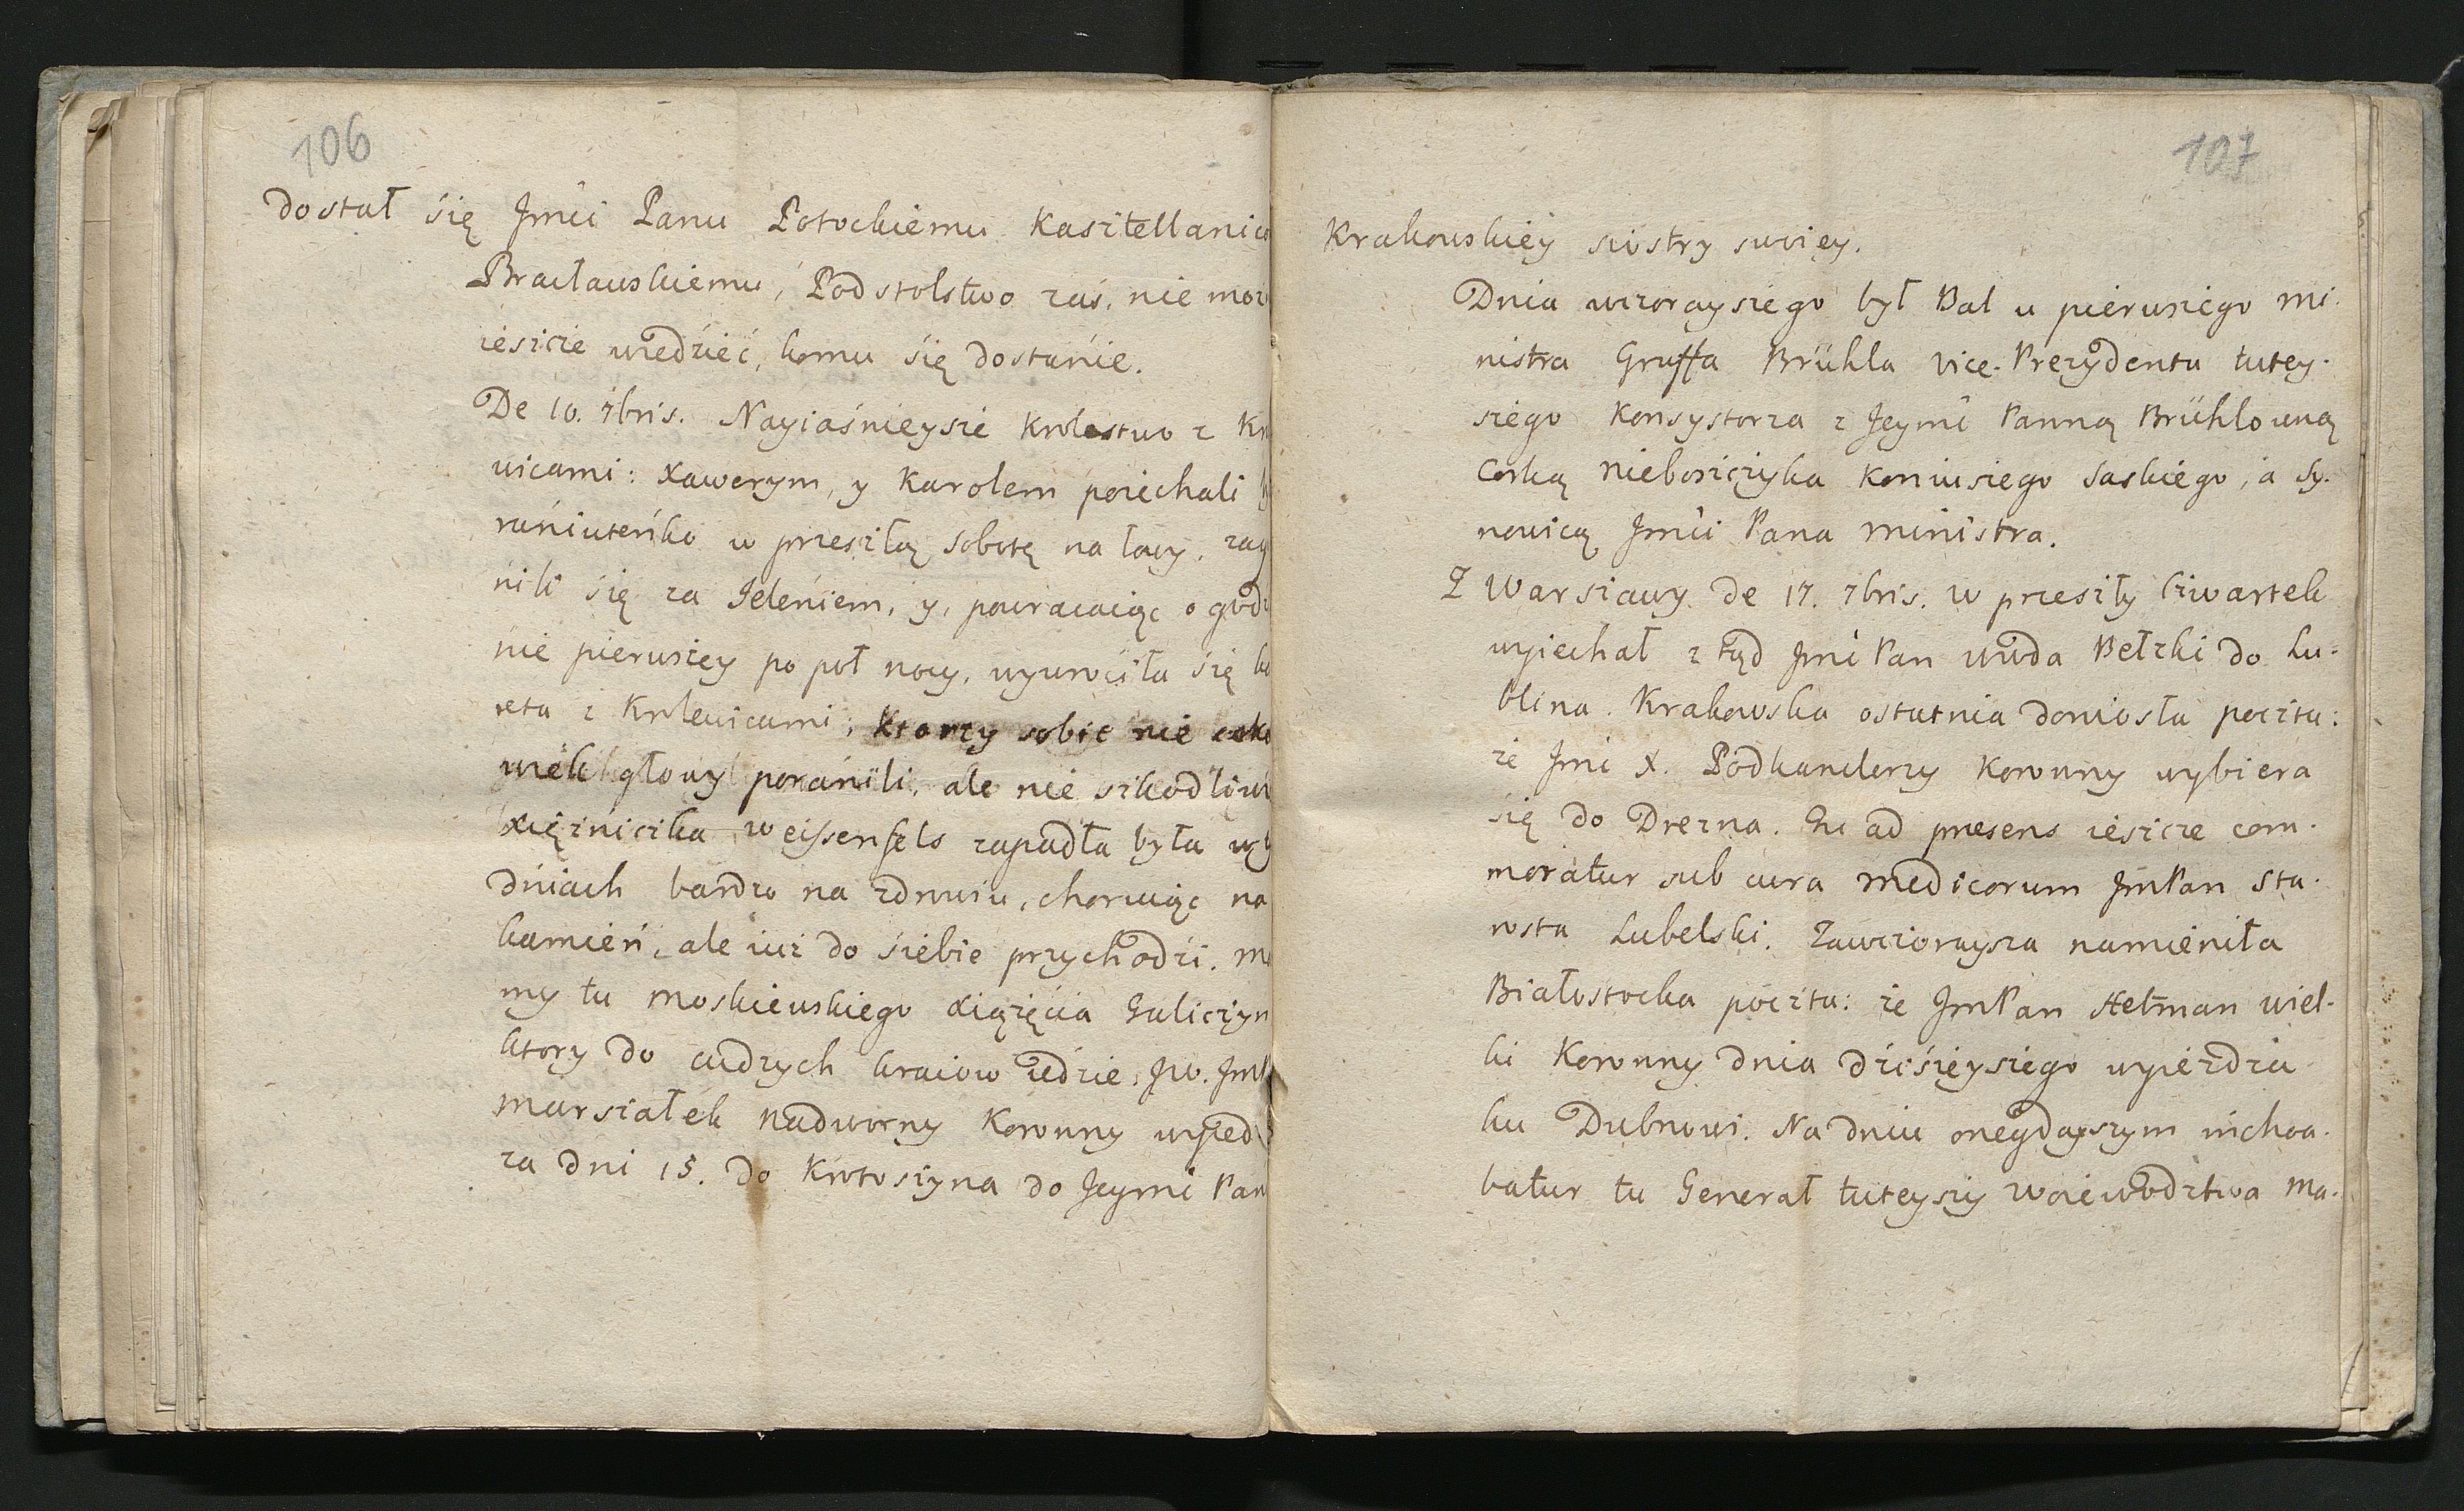 106
dostał się Jmći Panu Potockiemu Kasztellanico
Bracławskiemu, Podstolstwo zaś, nie moz
ieszcze wiedzieć, komu się dostanie.
De 10. 7bris. Nayiaśnieysze Krolestwo z Kr
wicami: Xawerym, y Karolem poiechali
raniuteńko w przeszłą sobotę na łowy, zag
nili się za Jeleniem, y, powracaiąc o godzi
nie pierwszey po poł nocy, wywrociła się ka
reta z Krolewicami; Ktorzy sobie nie cokol
wiek głowy poranili, ale nie szkodliwi
Xiężniczka Weissenfels zapadła była w ty
dniach bardzo na zdrowiu, choruiąc na
kamień, ale iuż do siebie przychodzi. Ma
my tu Moskiewskiego Xiążęcia Galiczyn
ktory do cudzych kraiow iedzie, JW. JmP
Marszałek Nadworny Koronny wyied
za dni 15. do Krotoszyna do Jeymć Pan
107
Krakowskiey siostry swoiey.
Dnia wczorayszego był Bal u pierwszego Mi-
nistra Graffa Brühla Vice-Prezydenta tutey-
szego Konsystorza z Jeymć Panną Brühlowną
Corką nieboszczyka Koniuszego Saskiego, a Sy-
nowicą Jmći Pana Ministra.
Z Warszawy de 17. 7bris. W przeszły Czwartek
wyiechał z tąd Jmć Pan Wwda Bełzki do Lu-
blina. Krakowska ostatnia doniosła poczta:
że Jmć X. Podkanclerzy Koronny wybiera
się do Drezna. Tu ad praesens ieszcze com-
moratur sub cura Medicorum JmPan Sta-
rosta Lubelski. Zawczoraysza namieniła
Białostocka poczta: że JmPan Hetman Wiel-
ki Koronny dnia dzisieyszego wyiezdza
ku Dubnowi. Na dniu onegdayszym inchoa-
batur tu Generał tuteyszy Woiewodztwa Ma-